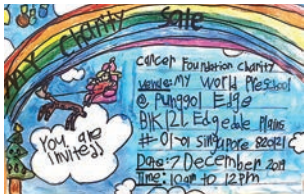 MY CHARITY Sale
cancer Foundation charity
venue: My World Preschool
@ Punggol Edge
BIK 121 Edgedale Plains
#-01-01 Singapore 820121
Date: 7 December 2019
Time: 10am to 12pm
You, are
invitess